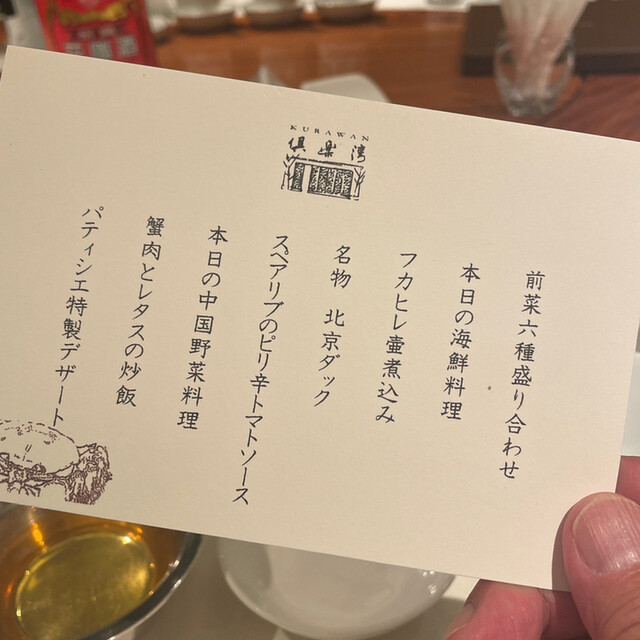 KURAWAN
倶楽湾
前菜六種盛り合わせ
本日の海鮮料理
フカヒレ壷煮込み
名物 北京ダック
スペアリブのピリ辛トマトソース
本日の中国野菜料理
蟹肉とレタスの炒飯
パティシエ特製デザート